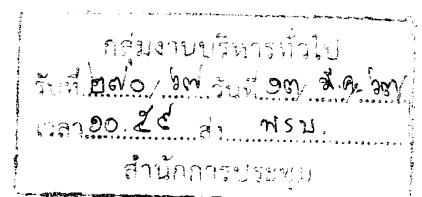 กลุ่มงานบริหารทั่วไป
รับที่ ๒๗๐/๖๗ วันที่ ๑๓ มี.ค. ๖๗
เวลา ๑๐.๕๙ ส่ง พรบ.
สำนักการประชุม